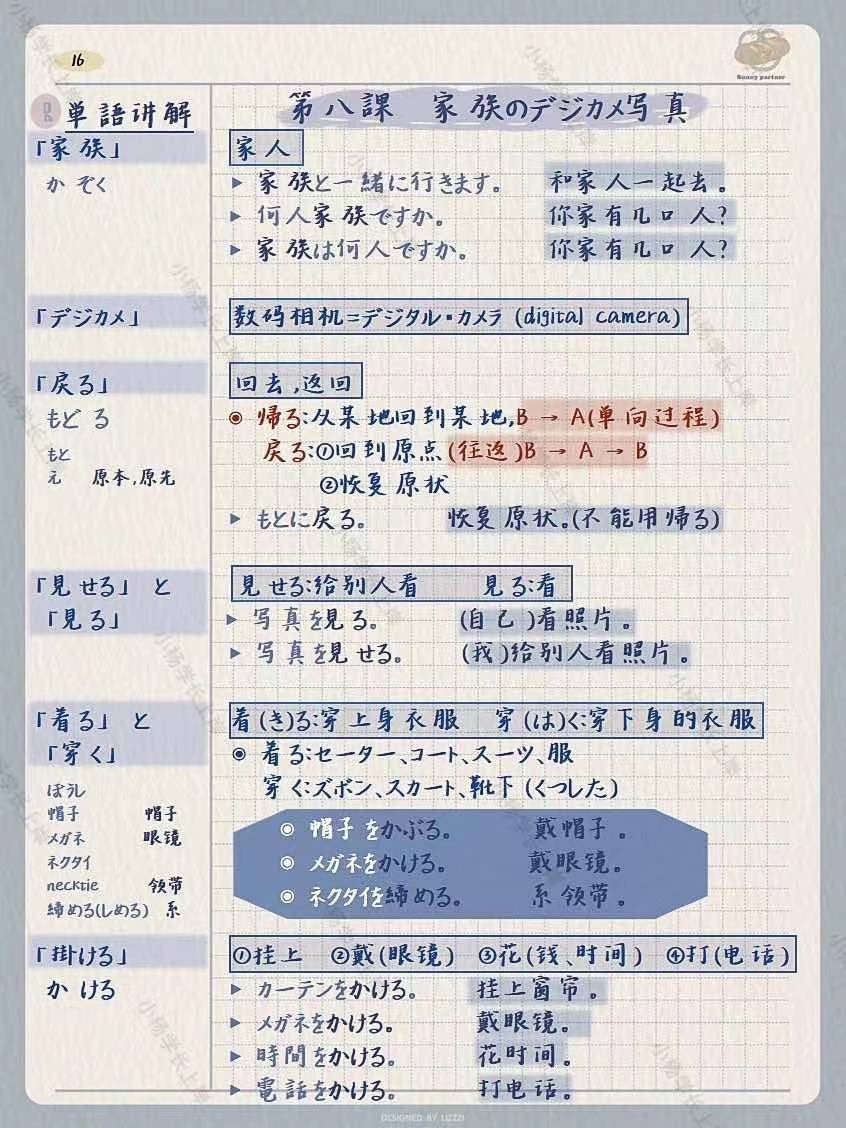 16
Sunny partner
単語讲解
第八課 家族のデジカメ写真
「家族」 家人
かぞく ▶ 家族と一緒に行きます。 和家人一起去。
▶ 何人家族ですか。 你家有几口人?
▶ 家族は何人ですか。 你家有几口人?
「デジカメ」 数码相机=デジタル・カメラ (digital camera)
「戻る」 回去,返回
もどる ◉ 帰る:从某地回到某地,B → A(单向过程)
もと 戻る:①回到原点(往返)B → A → B
元 原本,原先 ②恢复原状
▶ もとに戻る。 恢复原状。(不能用帰る)
「見せる」と 見せる:给别人看 見る:看
「見る」 ▶ 写真を見る。 (自己)看照片。
▶ 写真を見せる。 (我)给别人看照片。
「着る」と 着(き)る:穿上身衣服 穿(は)く:穿下身的衣服
「穿く」 ◉ 着る:セーター、コート、スーツ、服
ぼうし 穿く:ズボン、スカート、靴下(くつした)
帽子 帽子 ◉ 帽子をかぶる。 戴帽子。
メガネ 眼镜 ◉ メガネをかける。 戴眼镜。
ネクタイ ◉ ネクタイを締める。 系领带。
necktie 领带
締める(しめる) 系
「掛ける」 ①挂上 ②戴(眼镜) ③花(钱、时间) ④打(电话)
かける ▶ カーテンをかける。 挂上窗帘。
▶ メガネをかける。 戴眼镜。
▶ 時間をかける。 花时间。
▶ 電話をかける。 打电话。
DESIGNED BY LIZZI